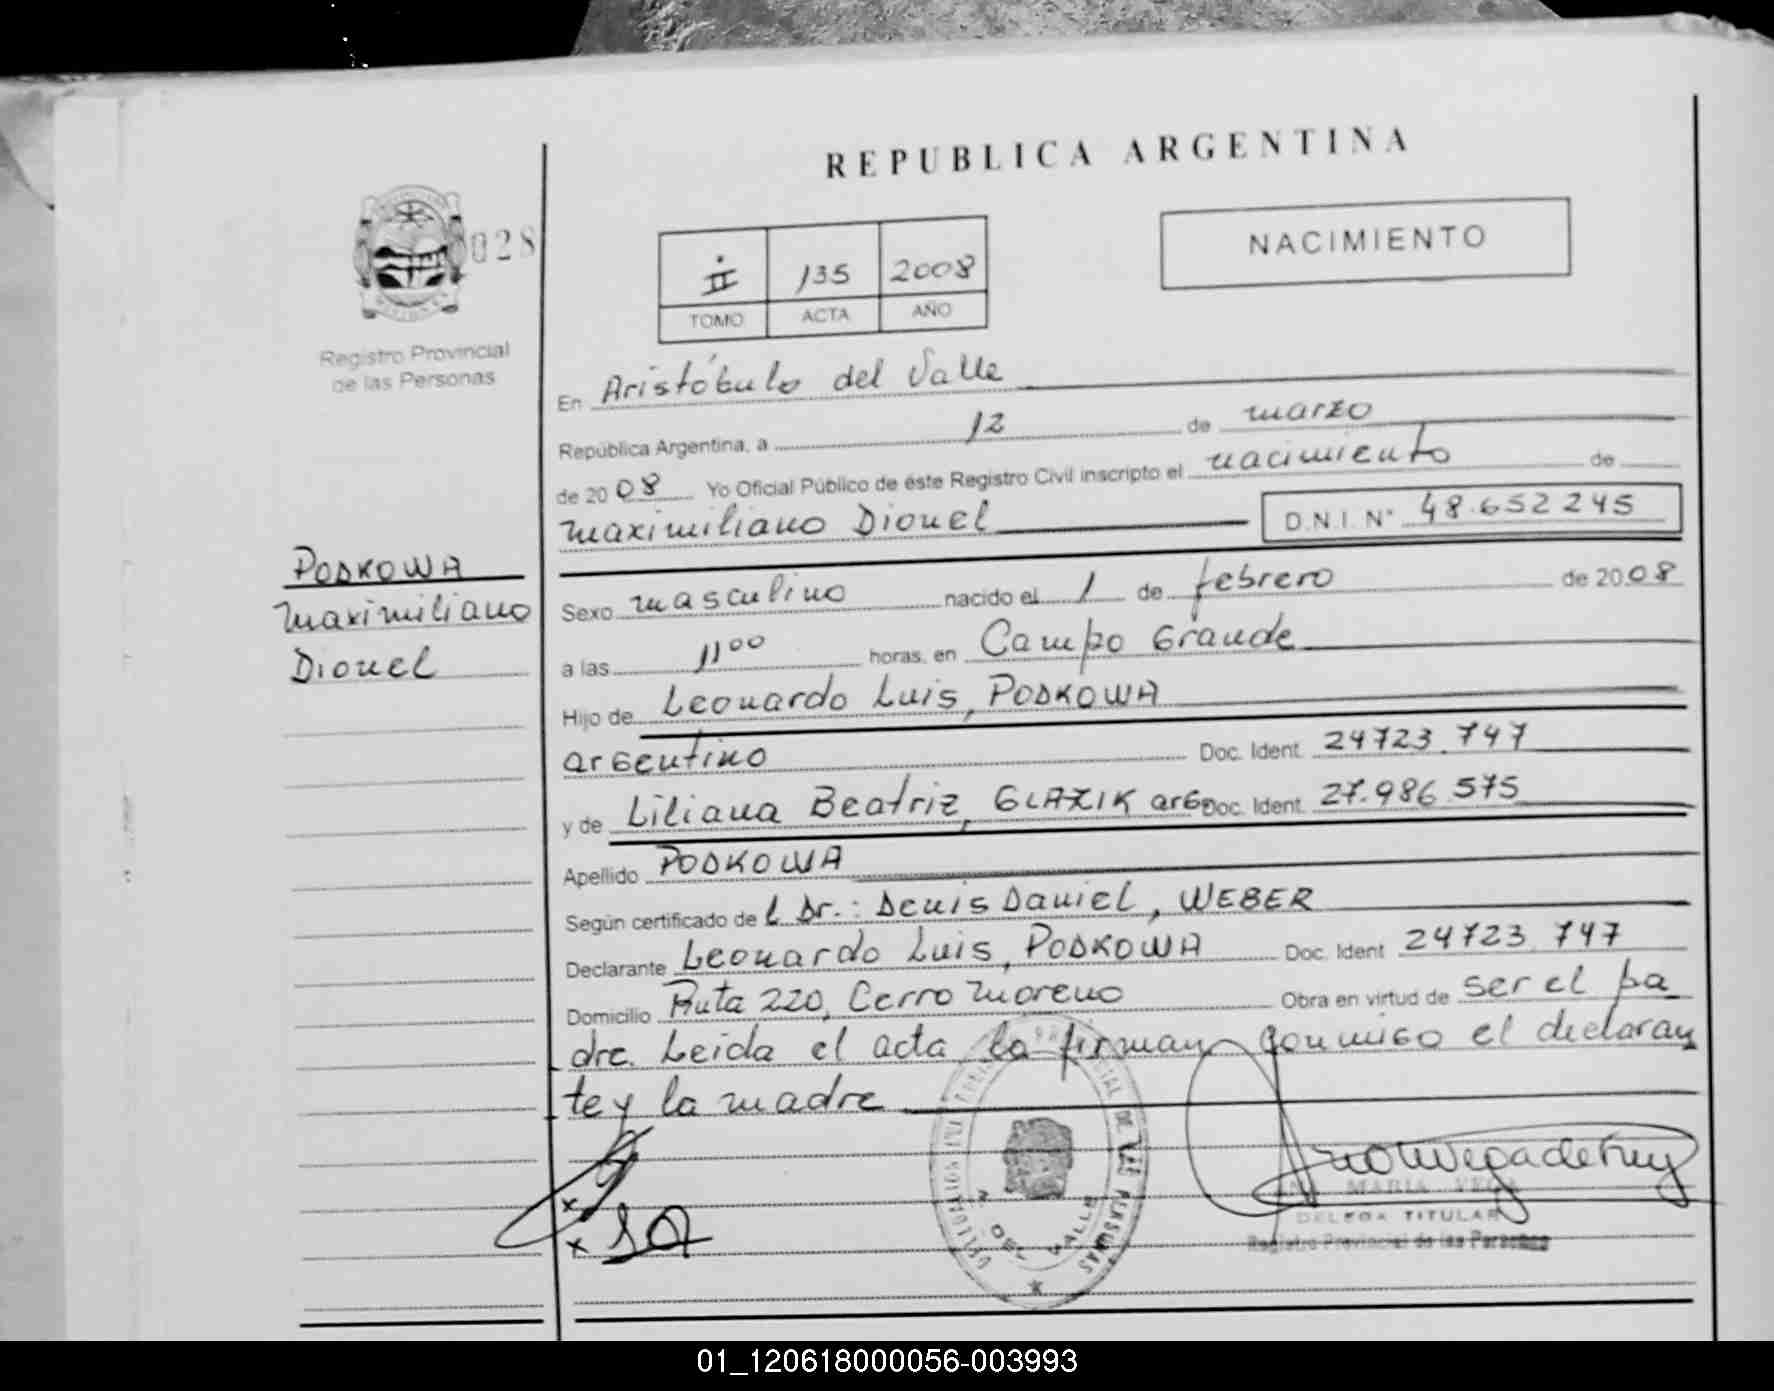 REPUBLICA ARGENTINA
028
NACIMIENTO
II 135 2008
TOMO ACTA AÑO
Registro Provincial
de las Personas
En Aristóbulo del Valle
República Argentina, a 12 de marzo
de 2008 Yo Oficial Público de éste Registro Civil inscripto el nacimiento de
maximiliano Dionel D.N.I. N° 48.652245
PODKOWA
maximiliano
Dionel
Sexo masculino nacido el 1 de febrero de 2008
a las 11 00 horas, en Campo Grande
Hijo de Leonardo Luis, PODKOWA
argentino Doc. Ident. 24723.747
y de Liliana Beatriz, GLAZIK arg Doc. Ident. 27.986.575
Apellido PODKOWA
Según certificado de l Dr.: Denis Daniel, WEBER
Declarante Leonardo Luis, PODKOWA Doc. Ident 24723.747
Domicilio Ruta 220, Cerro moreno Obra en virtud de ser el pa
dre. Leida el acta la firman conmigo el declaran
te y la madre
MARIA VEGA
TITULAR
Registro Provincial de las Personas
DEL VALLE
01_120618000056-003993